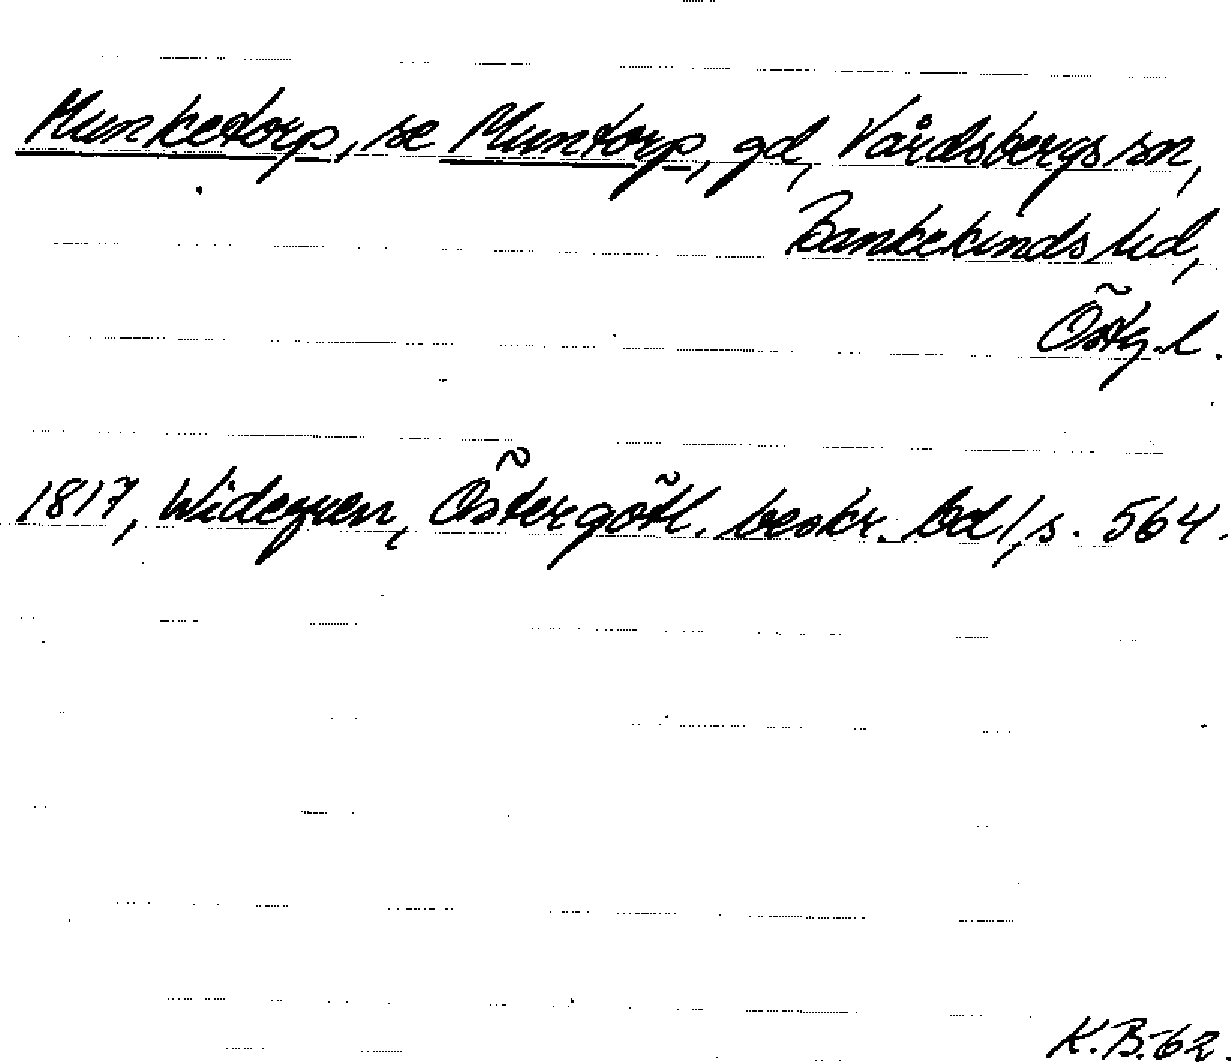 Munketorp, se Muntorp, gd, Vårdsbergs sn,
Bankekinds hd,
Östg.l.
1817, Widegren, Östergötl. beskr. Bd 1, s. 564.
K.B.-62.